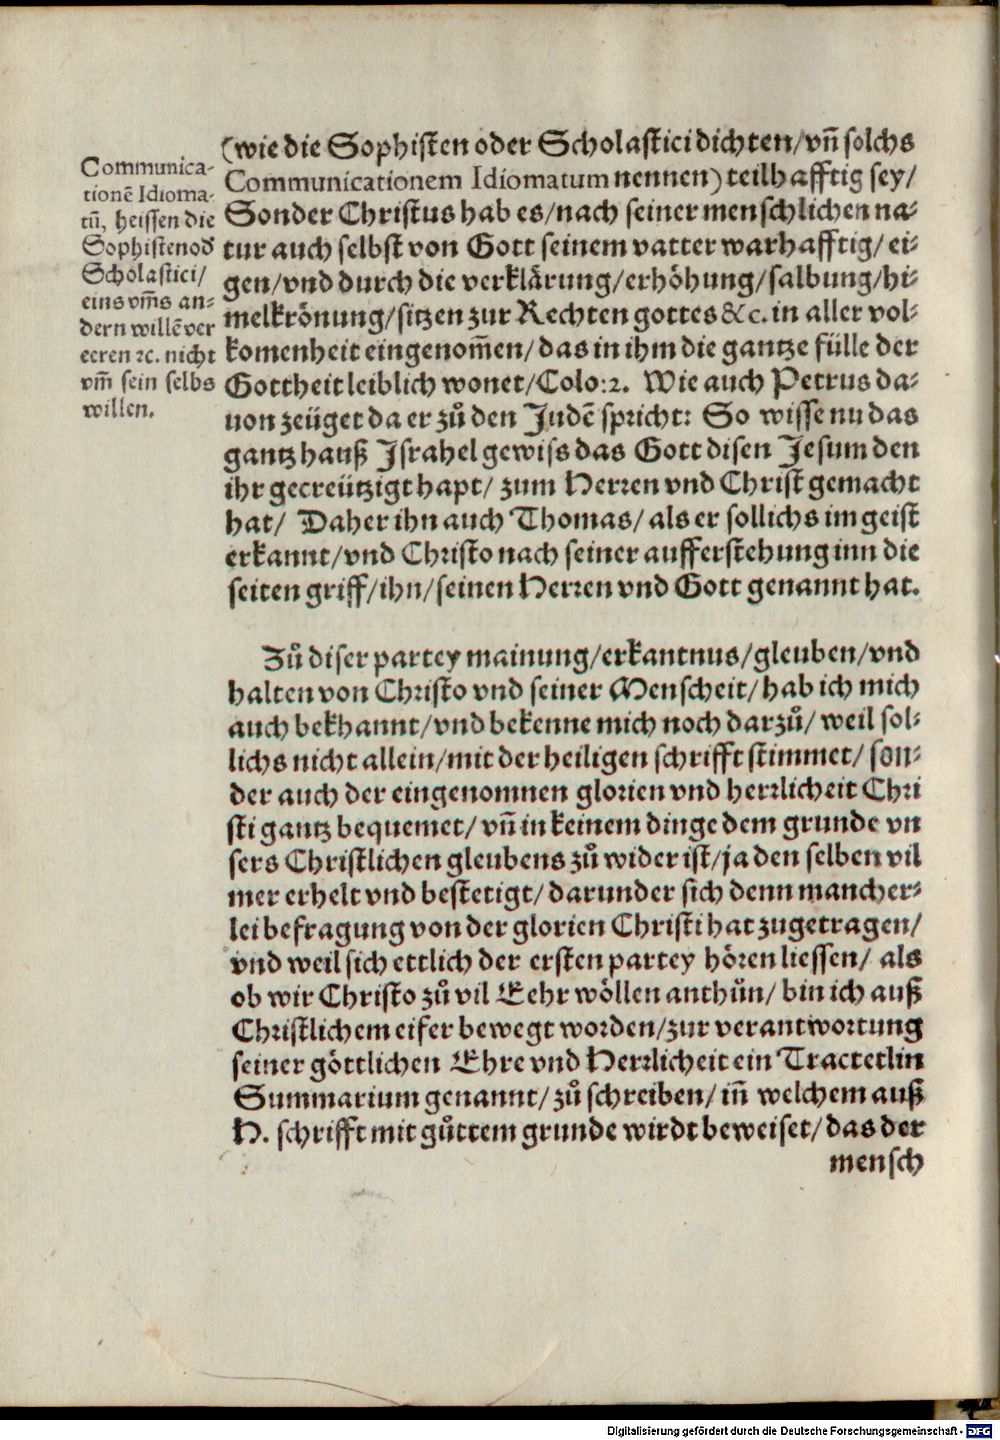 Communica-
tionē Idioma-
tū, heissen die
Sophisten od̕
Scholastici/
eins vm̄s an-
dern willē ver
eeren ꝛc. nicht
vm̄ sein selbs
willen.
(wie die Sophisten oder Scholastici dichten/ vn̄ solchs
Communicationem Idiomatum nennen) teilhafftig sey/
Sonder Christus hab es/ nach seiner menschlichen na-
tur auch selbst von Gott seinem vatter warhafftig/ ei-
gen/ vnd durch die verklärung/ erhöhung/ salbung/ hi-
melkrönung/ sitzen zur Rechten gottes &c. in aller vol-
komenheit eingenom̄en/ das in ihm die gantze fülle der
Gottheit leiblich wonet/ Colo: 2. Wie auch Petrus da-
uon zeüget da er zů den Judē spricht: So wisse nu das
gantz hauß Israhel gewiss das Gott disen Jesum den
ihr gecreützigt hapt/ zum Herren vnd Christ gemacht
hat/ Daher ihn auch Thomas/ als er sollichs im geist
erkannt/ vnd Christo nach seiner aufferstehung inn die
seiten griff/ ihn/ seinen Herren vnd Gott genannt hat.
Zů diser partey mainung/ erkantnus/ gleuben/ vnd
halten von Christo vnd seiner Menscheit/ hab ich mich
auch bekhannt/ vnd bekenne mich noch darzů/ weil sol-
lichs nicht allein/ mit der heiligen schrifft stimmet/ son-
der auch der eingenomnen glorien vnd herrlicheit Chri
sti gantz bequemet/ vn̄ in keinem dinge dem grunde vn
sers Christlichen gleubens zů wider ist/ ja den selben vil
mer erhelt vnd bestetigt/ darunder sich denn mancher-
lei befragung von der glorien Christi hat zugetragen/
vnd weil sich ettlich der ersten partey hören liessen/ als
ob wir Christo zů vil Eehr wöllen anthůn/ bin ich auß
Christlichem eifer bewegt worden/ zur verantwortung
seiner göttlichen Ehre vnd Herrlicheit ein Tractetlin
Summarium genannt/ zů schreiben/ in̄ welchem auß
H. schrifft mit gůttem grunde wirdt beweiset/ das der
mensch
Digitalisierung gefördert durch die Deutsche Forschungsgemeinschaft - DFG